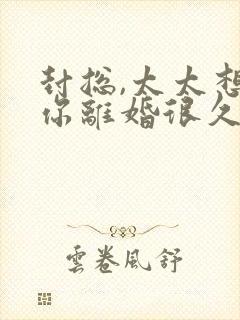 封总,太太想
你离婚很久
雲卷風舒